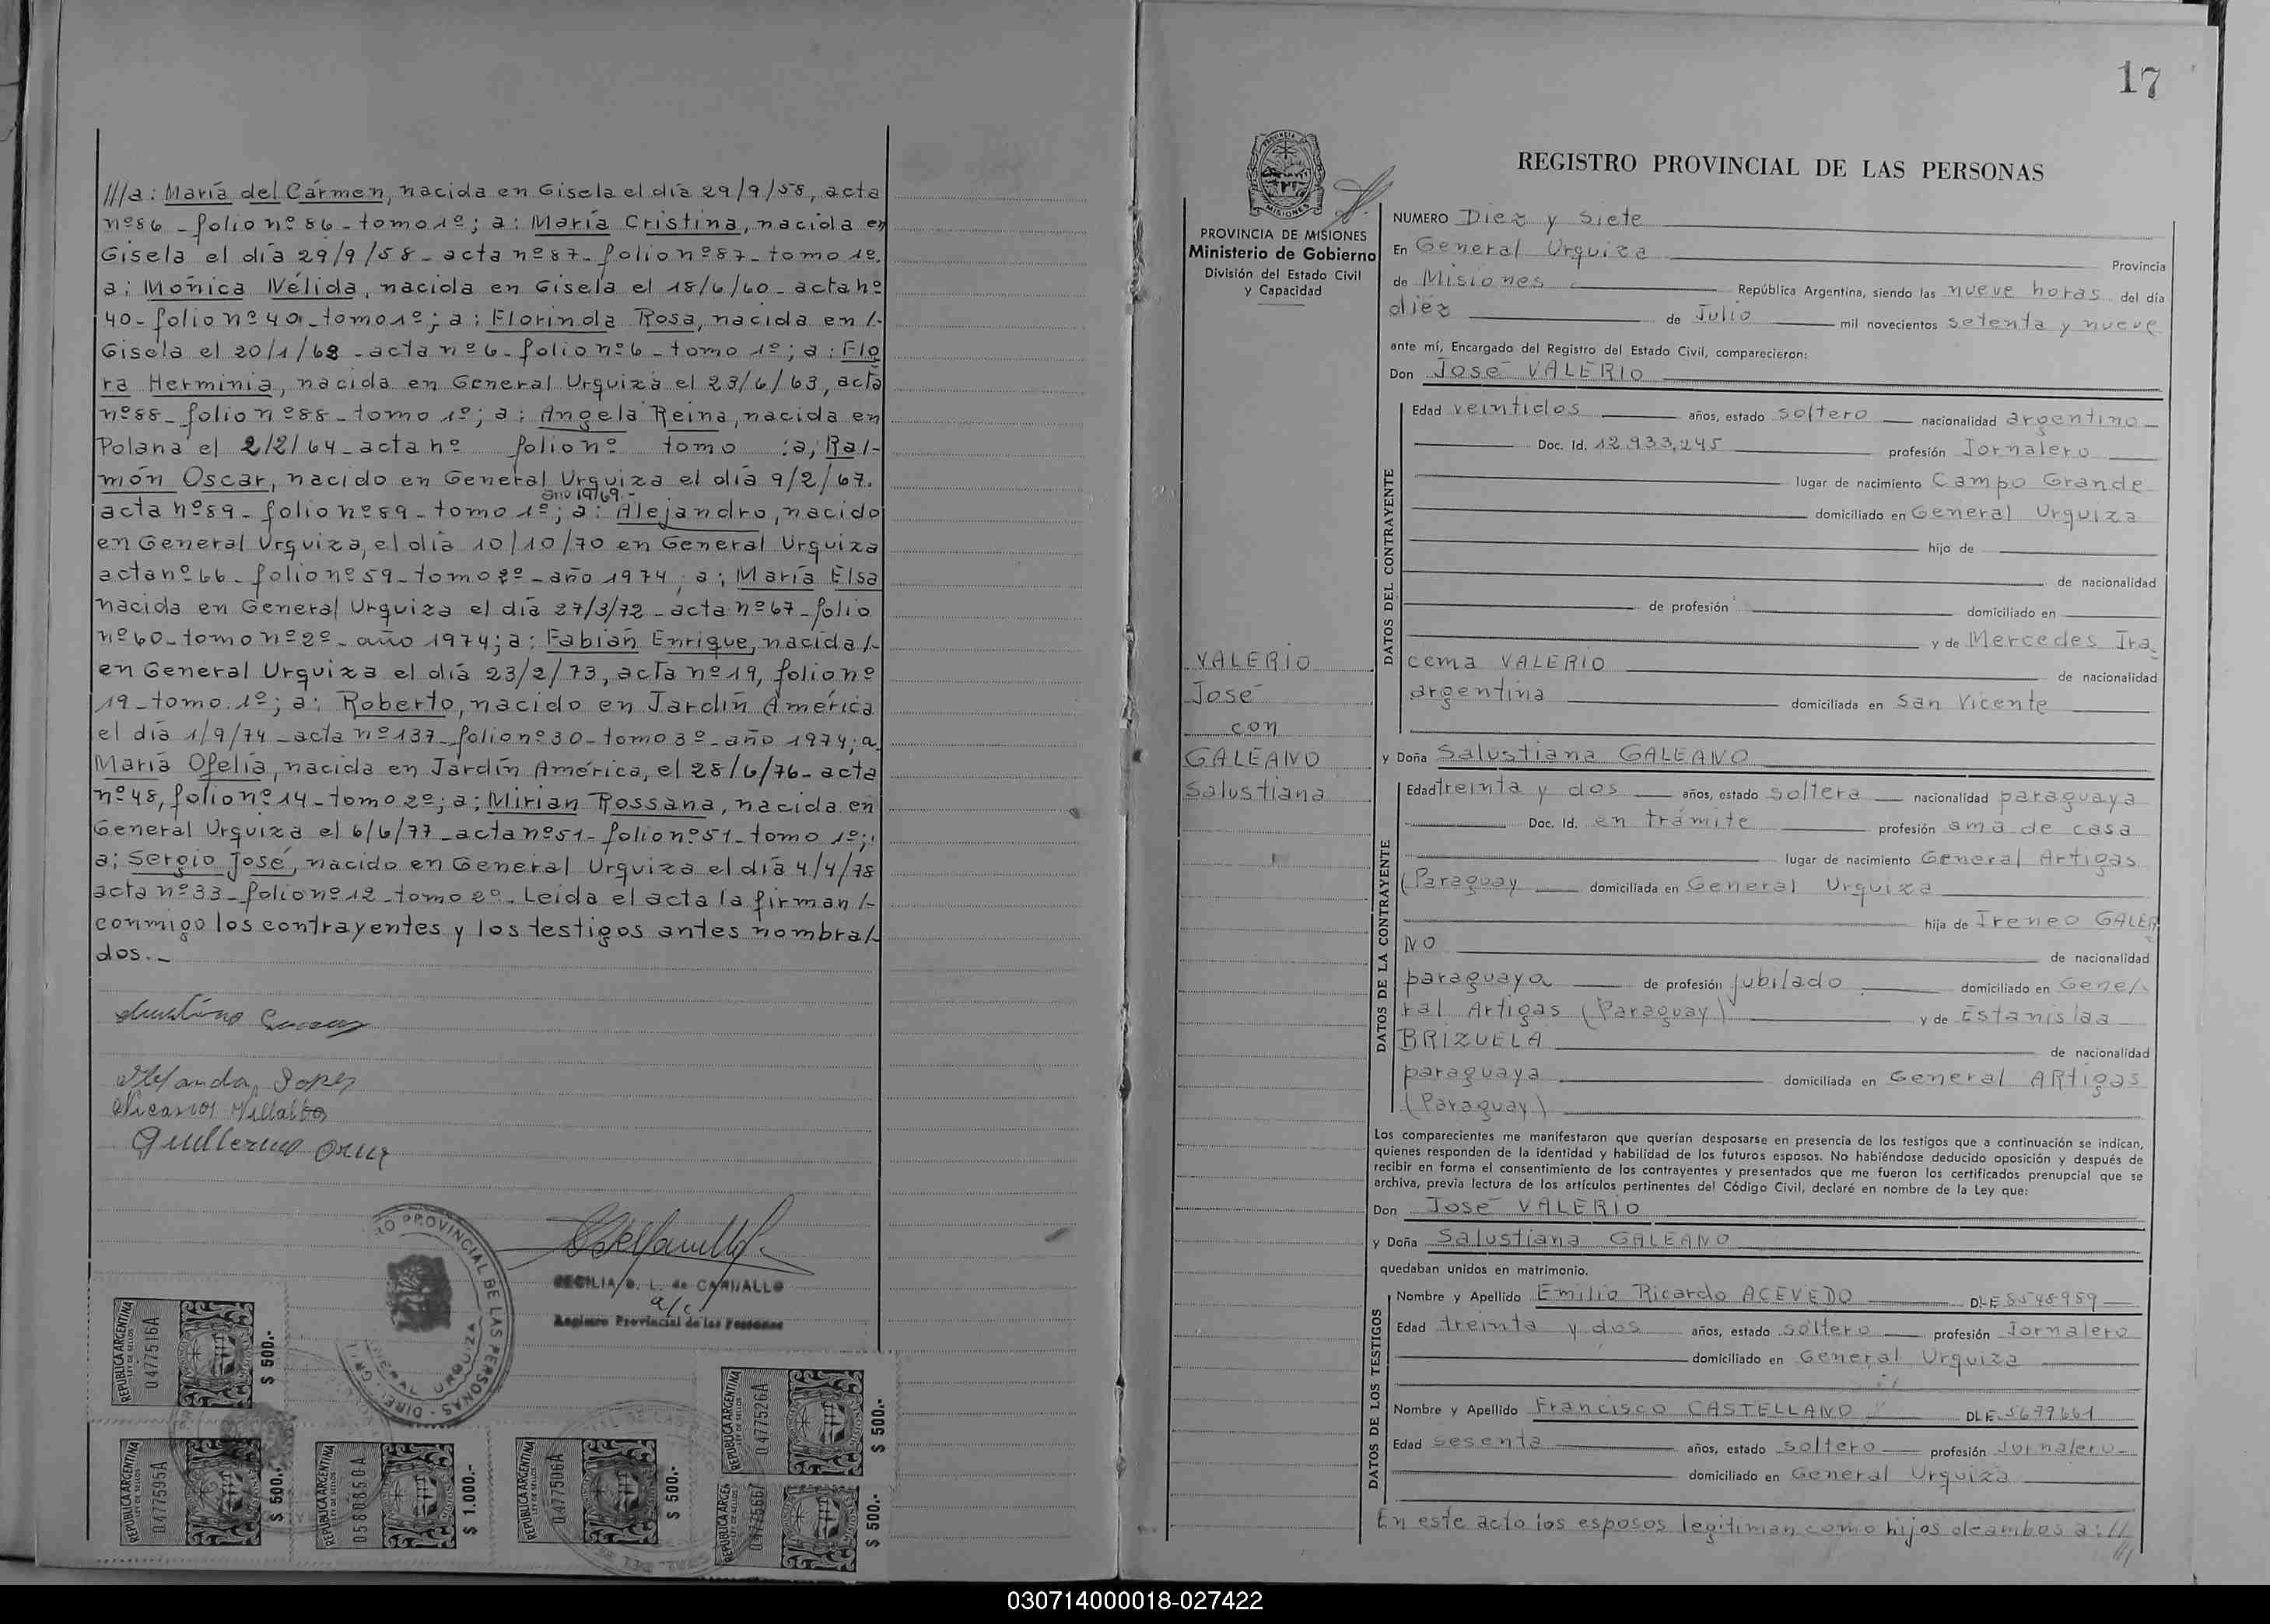 ///a: María del Cármen, nacida en Gisela el día 29/9/58, acta
nº86 - folio nº 86 - tomo 1º; a: María Cristina, nacida en
Gisela el día 29/9/58 - acta nº87 - folio nº87 - tomo 1º.
a: Moñica Nélida, nacida en Gisela el 18/6/60 - acta nº
40 - folio nº 40 - tomo 1º; a: Florinda Rosa, nacida en /-
Gisela el 20/1/62 - acta nº6 - folio nº6 - tomo 1º; a: Flo
ra Herminia, nacida en General Urquiza el 23/6/63, acta
nº88 - folio nº88 - tomo 1º; a: Angela Reina, nacida en
Polana el 2/2/64 - acta nº folio nº tomo :a, Ra/-
món Oscar, nacido en General Urquiza el día 9/2/67.
año 1969.-
acta nº89 - folio nº89 - tomo 1º; a: Alejandro, nacido
en General Urquiza, el día 10/10/70 en General Urquiza
acta nº66 - folio nº59 - tomo 2º - año 1974; a: María Elsa
nacida en General Urquiza el día 27/3/72 - acta nº67 - folio
nº60 - tomo nº2º - año 1974; a: Fabián Enrique, nacida /-
en General Urquiza el día 23/2/73, acta nº19, folio nº
19 - tomo 1º; a: Roberto, nacido en Jardín América
el día 1/9/74 - acta nº137 - folio nº30 - tomo 3º - año 1974; a
María Ofelia, nacida en Jardín América, el 28/6/76 - acta
nº48, folio nº14 - tomo 2º; a: Mirian Rossana, nacida en
General Urquiza el 6/6/77 - acta nº51 - folio nº51 - tomo 1º;
a: Sergio José, nacido en General Urquiza el día 4/4/78
acta nº33 - folio nº12 - tomo 2º. Leída el acta la firman /-
conmigo los contrayentes y los testigos antes nombra/-
dos.-
Villalba
Guillermo
CECILIA B. L. de CARVALLO
a/c
Registro Provincial de las Personas
REGISTRO PROVINCIAL DE LAS PERSONAS - DIRE. GRL.
GENERAL URQUIZA
REPUBLICA ARGENTINA
LEY DE SELLOS
0477516A
$ 500.-
REPUBLICA ARGENTINA
LEY DE SELLOS
0477595A
$ 500.-
REPUBLICA ARGENTINA
LEY DE SELLOS
0580850A
$ 1.000.-
REPUBLICA ARGENTINA
LEY DE SELLOS
0477506A
$ 500.-
REPUBLICA ARGENTINA
LEY DE SELLOS
0477526A
$ 500.-
$ 500.-
17
REGISTRO PROVINCIAL DE LAS PERSONAS
PROVINCIA DE MISIONES
Ministerio de Gobierno
División del Estado Civil
y Capacidad
VALERIO
José
con
GALEANO
Salustiana
NUMERO Diez y Siete
En General Urquiza Provincia
de Misiones República Argentina, siendo las nueve horas del día
diéz de Julio mil novecientos setenta y nueve
ante mí, Encargado del Registro del Estado Civil, comparecieron:
Don José VALERIO
DATOS DEL CONTRAYENTE
Edad veintidos años, estado soltero nacionalidad argentino
Doc. Id. 12.933.245 profesión Jornalero
lugar de nacimiento Campo Grande
domiciliado en General Urquiza
hijo de
de nacionalidad
de profesión domiciliado en
y de Mercedes Ira
cema VALERIO
de nacionalidad
argentina domiciliada en San Vicente
y Doña Salustiana GALEANO
DATOS DE LA CONTRAYENTE
Edad treinta y dos años, estado soltera nacionalidad paraguaya
Doc. Id. en trámite profesión ama de casa
lugar de nacimiento General Artigas
(Paraguay domiciliada en General Urquiza
hija de Ireneo GALEA
NO
de nacionalidad
paraguaya de profesión jubilado domiciliado en Gene/-
ral Artigas (Paraguay) y de Estanislaa
BRIZUELA
de nacionalidad
paraguaya domiciliada en General ARtigas
(Paraguay)
Los comparecientes me manifestaron que querían desposarse en presencia de los testigos que a continuación se indican,
quienes responden de la identidad y habilidad de los futuros esposos. No habiéndose deducido oposición y después de
recibir en forma el consentimiento de los contrayentes y presentados que me fueron los certificados prenupcial que se
archiva, previa lectura de los artículos pertinentes del Código Civil, declaré en nombre de la Ley que:
Don José VALERIO
y Doña Salustiana GALEANO
quedaban unidos en matrimonio.
DATOS DE LOS TESTIGOS
Nombre y Apellido Emilio Ricardo ACEVEDO DLE 8548959
Edad treinta y dos años, estado soltero profesión Jornalero
domiciliado en General Urquiza
Nombre y Apellido Francisco CASTELLANO DLE 5679661
Edad sesenta años, estado soltero profesión Jornalero
domiciliado en General Urquiza
En este acto los esposos legitiman como hijos de ambos a: //
///
030714000018-027422